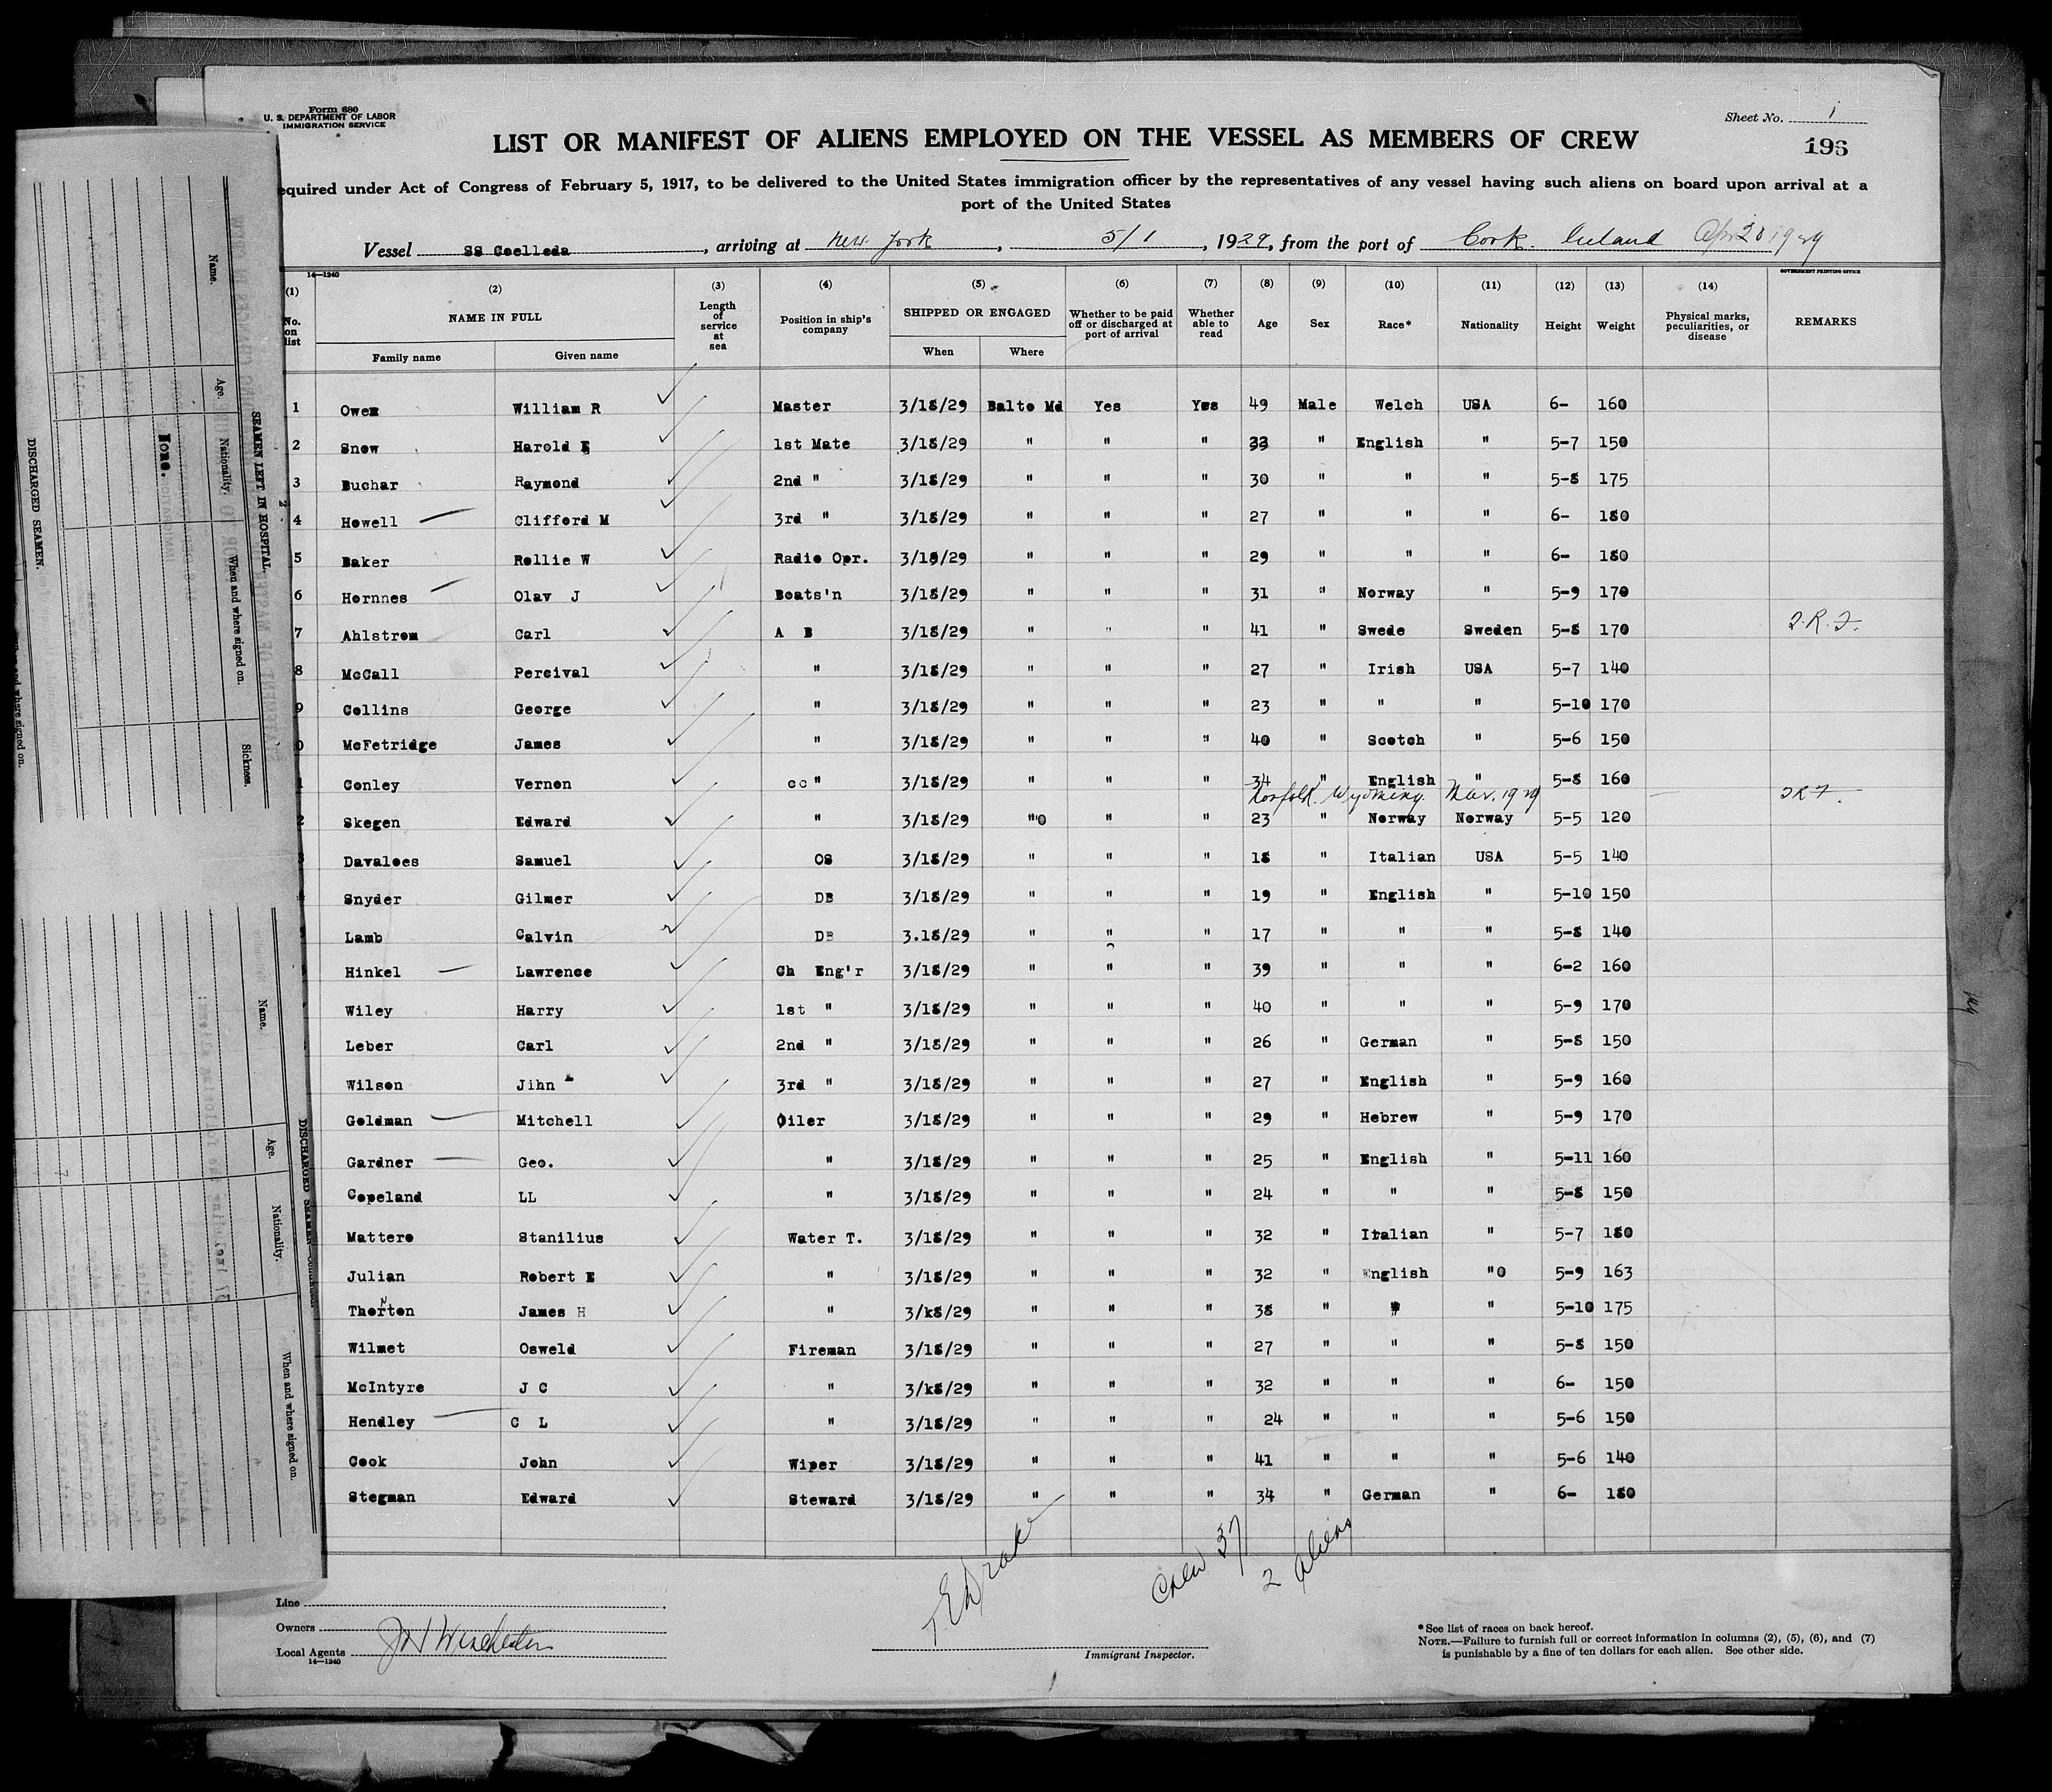 Form 680
U. S. DEPARTMENT OF LABOR
IMMIGRATION SERVICE
Sheet No. 1
LIST OR MANIFEST OF ALIENS EMPLOYED ON THE VESSEL AS MEMBERS OF CREW
196
equired under Act of Congress of February 5, 1917, to be delivered to the United States immigration officer by the representatives of any vessel having such aliens on board upon arrival at a
port of the United States
Vessel SS Coelleda, arriving at New York, 5/1, 1929, from the port of Cork Ireland Apr 20 1929
14—1240 GOVERNMENT PRINTING OFFICE
(1) (2) (3) (4) (5) (6) (7) (8) (9) (10) (11) (12) (13) (14)
No. on list NAME IN FULL Family name Given name Length of service at sea Position in ship's company SHIPPED OR ENGAGED When Where Whether to be paid off or discharged at port of arrival Whether able to read Age Sex Race* Nationality Height Weight Physical marks, peculiarities, or disease REMARKS
1 Owen William R Master 3/18/29 Balto Md Yes Yes 49 Male Welch USA 6- 160
2 Snow Harold E 1st Mate 3/18/29 " " " 33 " English " 5-7 150
3 Buchar Raymond 2nd " 3/18/29 " " " 30 " " " 5-8 175
4 Howell Clifford M 3rd " 3/18/29 " " " 27 " " " 6- 180
5 Baker Rollie W Radio Opr. 3/19/29 " " " 29 " " " 6- 180
6 Hornnes Olav J Boats'n 3/18/29 " " " 31 " Norway " 5-9 170
7 Ahlstrom Carl A B 3/18/29 " " " 41 " Swede Sweden 5-8 170
8 McCall Percival " 3/18/29 " " " 27 " Irish USA 5-7 140
9 Collins George " 3/18/29 " " " 23 " " " 5-10 170
0 McFetridge James " 3/18/29 " " " 40 " Scotch " 5-6 150
1 Conley Vernon cc " 3/18/29 " " " 34 " English " 5-8 160
Norfolk. Wyoming. Mar. 1929
2 Skogen Edward " 3/18/29 "0 " " 23 " Norway Norway 5-5 120
3 Davaloes Samuel OS 3/18/29 " " " 18 " Italian USA 5-5 140
Snyder Gilmer DB 3/18/29 " " " 19 " English " 5-10 150
Lamb Calvin DB 3.18/29 " " " 17 " " " 5-8 140
Hinkel Lawrence Ch Eng'r 3/18/29 " " " 39 " " " 6-2 160
Wiley Harry 1st " 3/18/29 " " " 40 " " " 5-9 170
Leber Carl 2nd " 3/18/29 " " " 26 " German " 5-8 150
Wilson Jihn 3rd " 3/18/29 " " " 27 " English " 5-9 160
Goldman Mitchell Oiler 3/18/29 " " " 29 " Hebrew " 5-9 170
Gardner Geo. " 3/18/29 " " " 25 " English " 5-11 160
Copeland LL " 3/18/29 " " " 24 " " " 5-8 150
Mattero Stanilius Water T. 3/18/29 " " " 32 " Italian " 5-7 180
Julian Robert E " 3/18/29 " " " 32 " English "0 5-9 163
Thorton James H " 3/k8/29 " " " 38 " " " 5-10 175
Wilmot Osweld Fireman 3/18/29 " " " 27 " " " 5-8 150
McIntyre J C " 3/k8/29 " " " 32 " " " 6- 150
Hendley C L " 3/18/29 " " " 24 " " " 5-6 150
Cook John Wiper 3/18/29 " " " 41 " " " 5-6 140
Stegman Edward Steward 3/18/29 " " " 34 " German " 6- 180
Crew 37
2 aliens
Line
Owners
Local Agents
14—1240
Immigrant Inspector.
*See list of races on back hereof.
NOTE.—Failure to furnish full or correct information in columns (2), (5), (6), and (7)
is punishable by a fine of ten dollars for each alien. See other side.
SEAMEN LEFT IN HOSPITAL.
Name. Age. Nationality. When and where signed on. Sickness.
None.
DISCHARGED SEAMEN.
Name. Age. Nationality. When and where signed on.